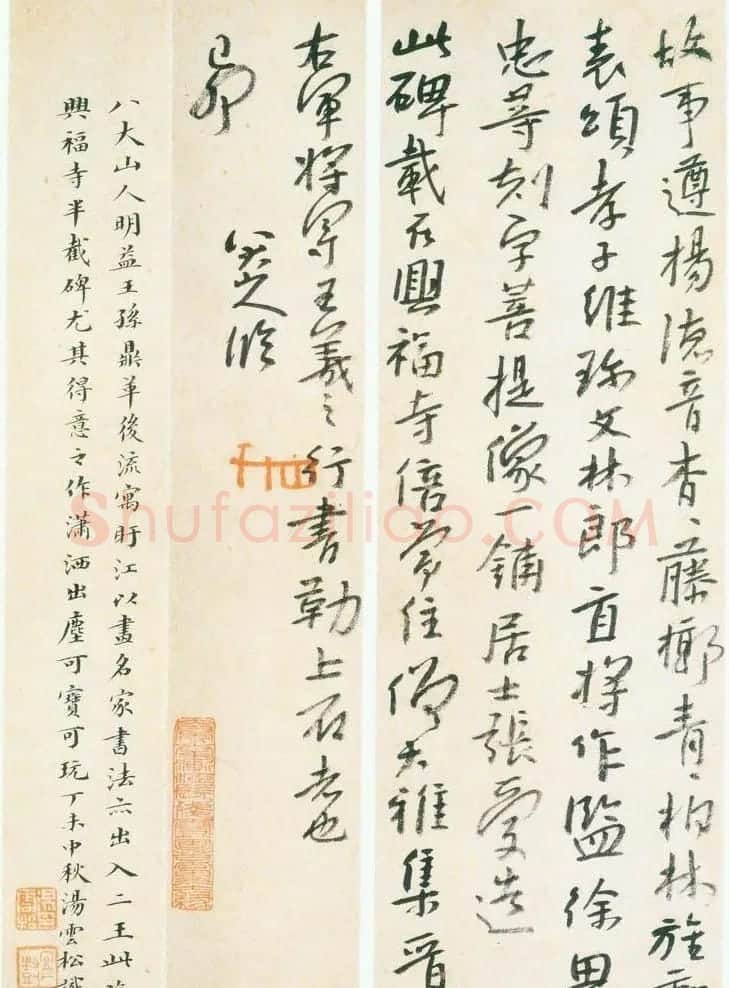 故事遵楊德音杳〻藤鄉青〻柏林旌
表頌孝子維珍文林郎直將作監徐思
忠等刻字菩提像一鋪居士張爱造
此碑載在興福寺倍常住僧大雅集晉
右軍將軍王羲之行書勒上石者也
己卯
八大山人臨
八大山人明益王孫鼎革後流寓盱江以畫名家書法亦出入二王此
興福寺半截碑尤其得意之作瀟洒出塵可寶可玩丁未中秋湯雲松識
Shufaziliao.COM